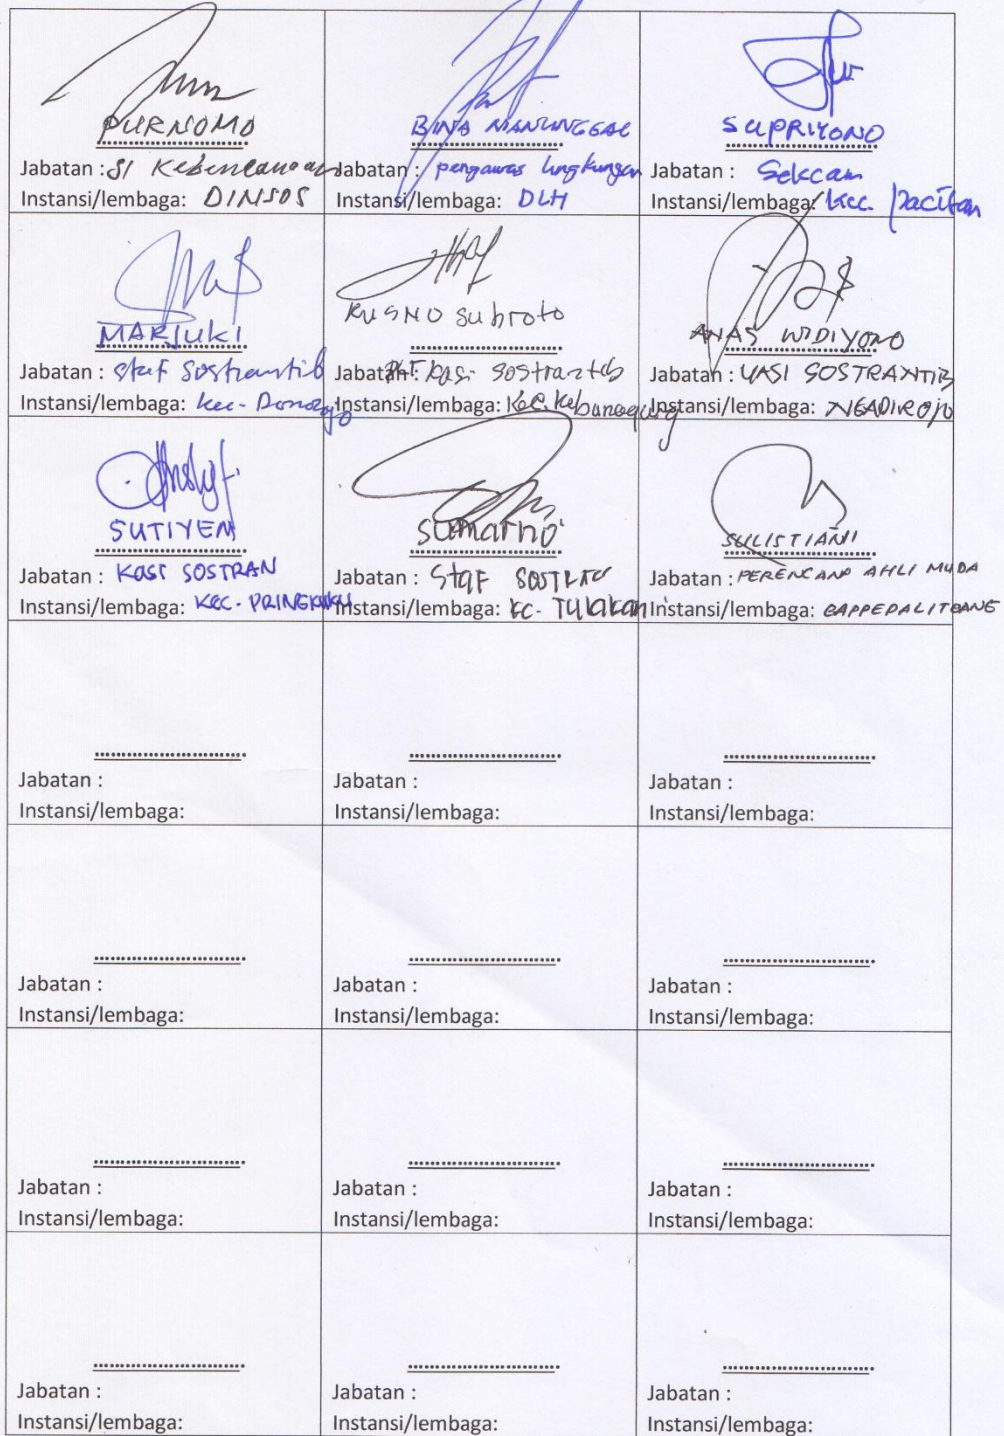 PURNOMO
Jabatan : SI Kebencanaan
Instansi/lembaga: DINSOS
BINA MANUNGGAL
Jabatan : pengawas lingkungan
Instansi/lembaga: DLH
SUPRIYONO
Jabatan : Sekcam
Instansi/lembaga: Kec. Pacitan
MARJUKI
Jabatan : Staf Sostrantib
Instansi/lembaga: Kec. Donorojo
KUSNO Subroto
Jabatan : Kasi Sostrantib
Instansi/lembaga: Kec. Kebonagung
ANAS WIDIYONO
Jabatan : KASI SOSTRANTIB
Instansi/lembaga: NGADIROJO
SUTIYEM
Jabatan : KASI SOSTRAN
Instansi/lembaga: KEC. PRINGKUKU
SUMARNO
Jabatan : STAF
Instansi/lembaga: KC. TULAKAN
SULISTIANI
Jabatan : PERENCANA AHLI MUDA
Instansi/lembaga: BAPPEDALITBANG
Jabatan :
Instansi/lembaga:
Jabatan :
Instansi/lembaga:
Jabatan :
Instansi/lembaga:
Jabatan :
Instansi/lembaga:
Jabatan :
Instansi/lembaga:
Jabatan :
Instansi/lembaga:
Jabatan :
Instansi/lembaga:
Jabatan :
Instansi/lembaga:
Jabatan :
Instansi/lembaga:
Jabatan :
Instansi/lembaga:
Jabatan :
Instansi/lembaga:
Jabatan :
Instansi/lembaga: